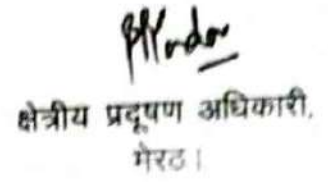 क्षेत्रीय प्रदूषण अधिकारी,
मेरठ।